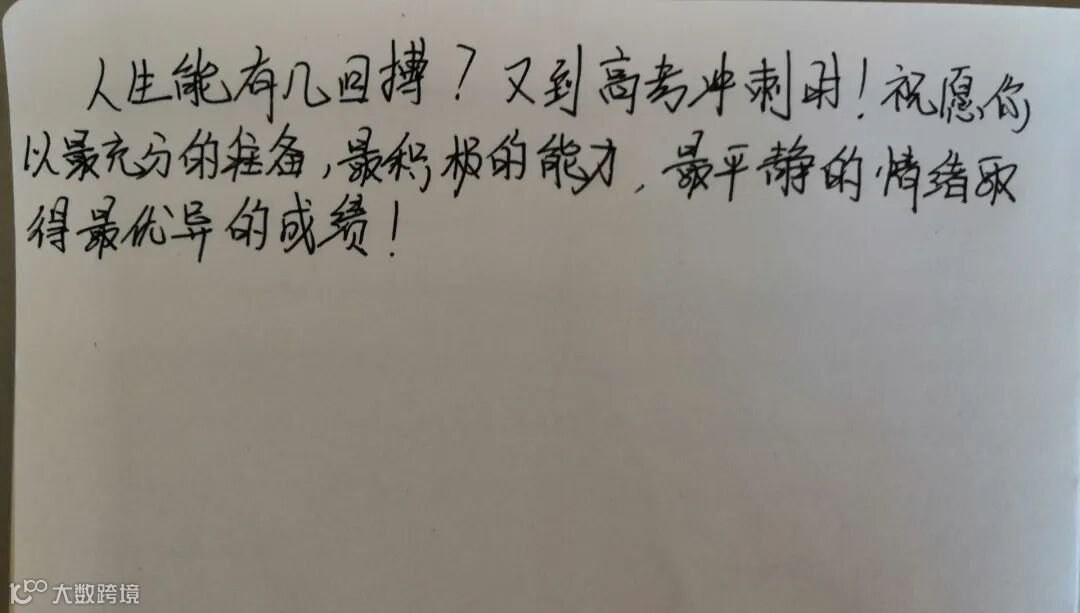 人生能有几回搏？又到高考冲刺时！祝愿你
以最充分的准备，最积极的能力，最平静的情绪取
得最优异的成绩！
大数跨境